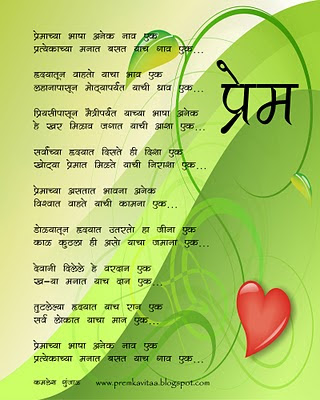 प्रेमाच्या भाषा अनेक नाव एक
प्रत्येकाच्या मनात बसत याच नाव एक...
हृदयातून वाहतो याचा भाव एक
लहानापासून मोठ्यापर्यंत याची धाव एक...
प्रियसीपासून मैत्रीपर्यंत याच्या भाषा अनेक
हे खर मिळाव जगात याची आशा एक...
सर्वांच्या हृदयात दिसते ही दिशा एक
खोट्या प्रेमात मिळते याची निराशा एक...
प्रेमाच्या असतात भावना अनेक
विश्वात वाहते याची कामना एक...
डोळ्यातून हृदयात उतरतो हा जीना एक
काळ कुठला ही असो याचा जमाना एक...
देवानी दिलेले हे वरदान एक
ख-या मनात याच दान एक...
तुटलेल्या हृदयात याच रान एक...
सर्व लोकात याचा मान एक...
प्रेमाच्या भाषा अनेक नाव एक
प्रत्येकाच्या मनात बसत याच नाव एक...
कमलेश गुंजाळ www.premkavitaa.blogspot.com
प्रेम